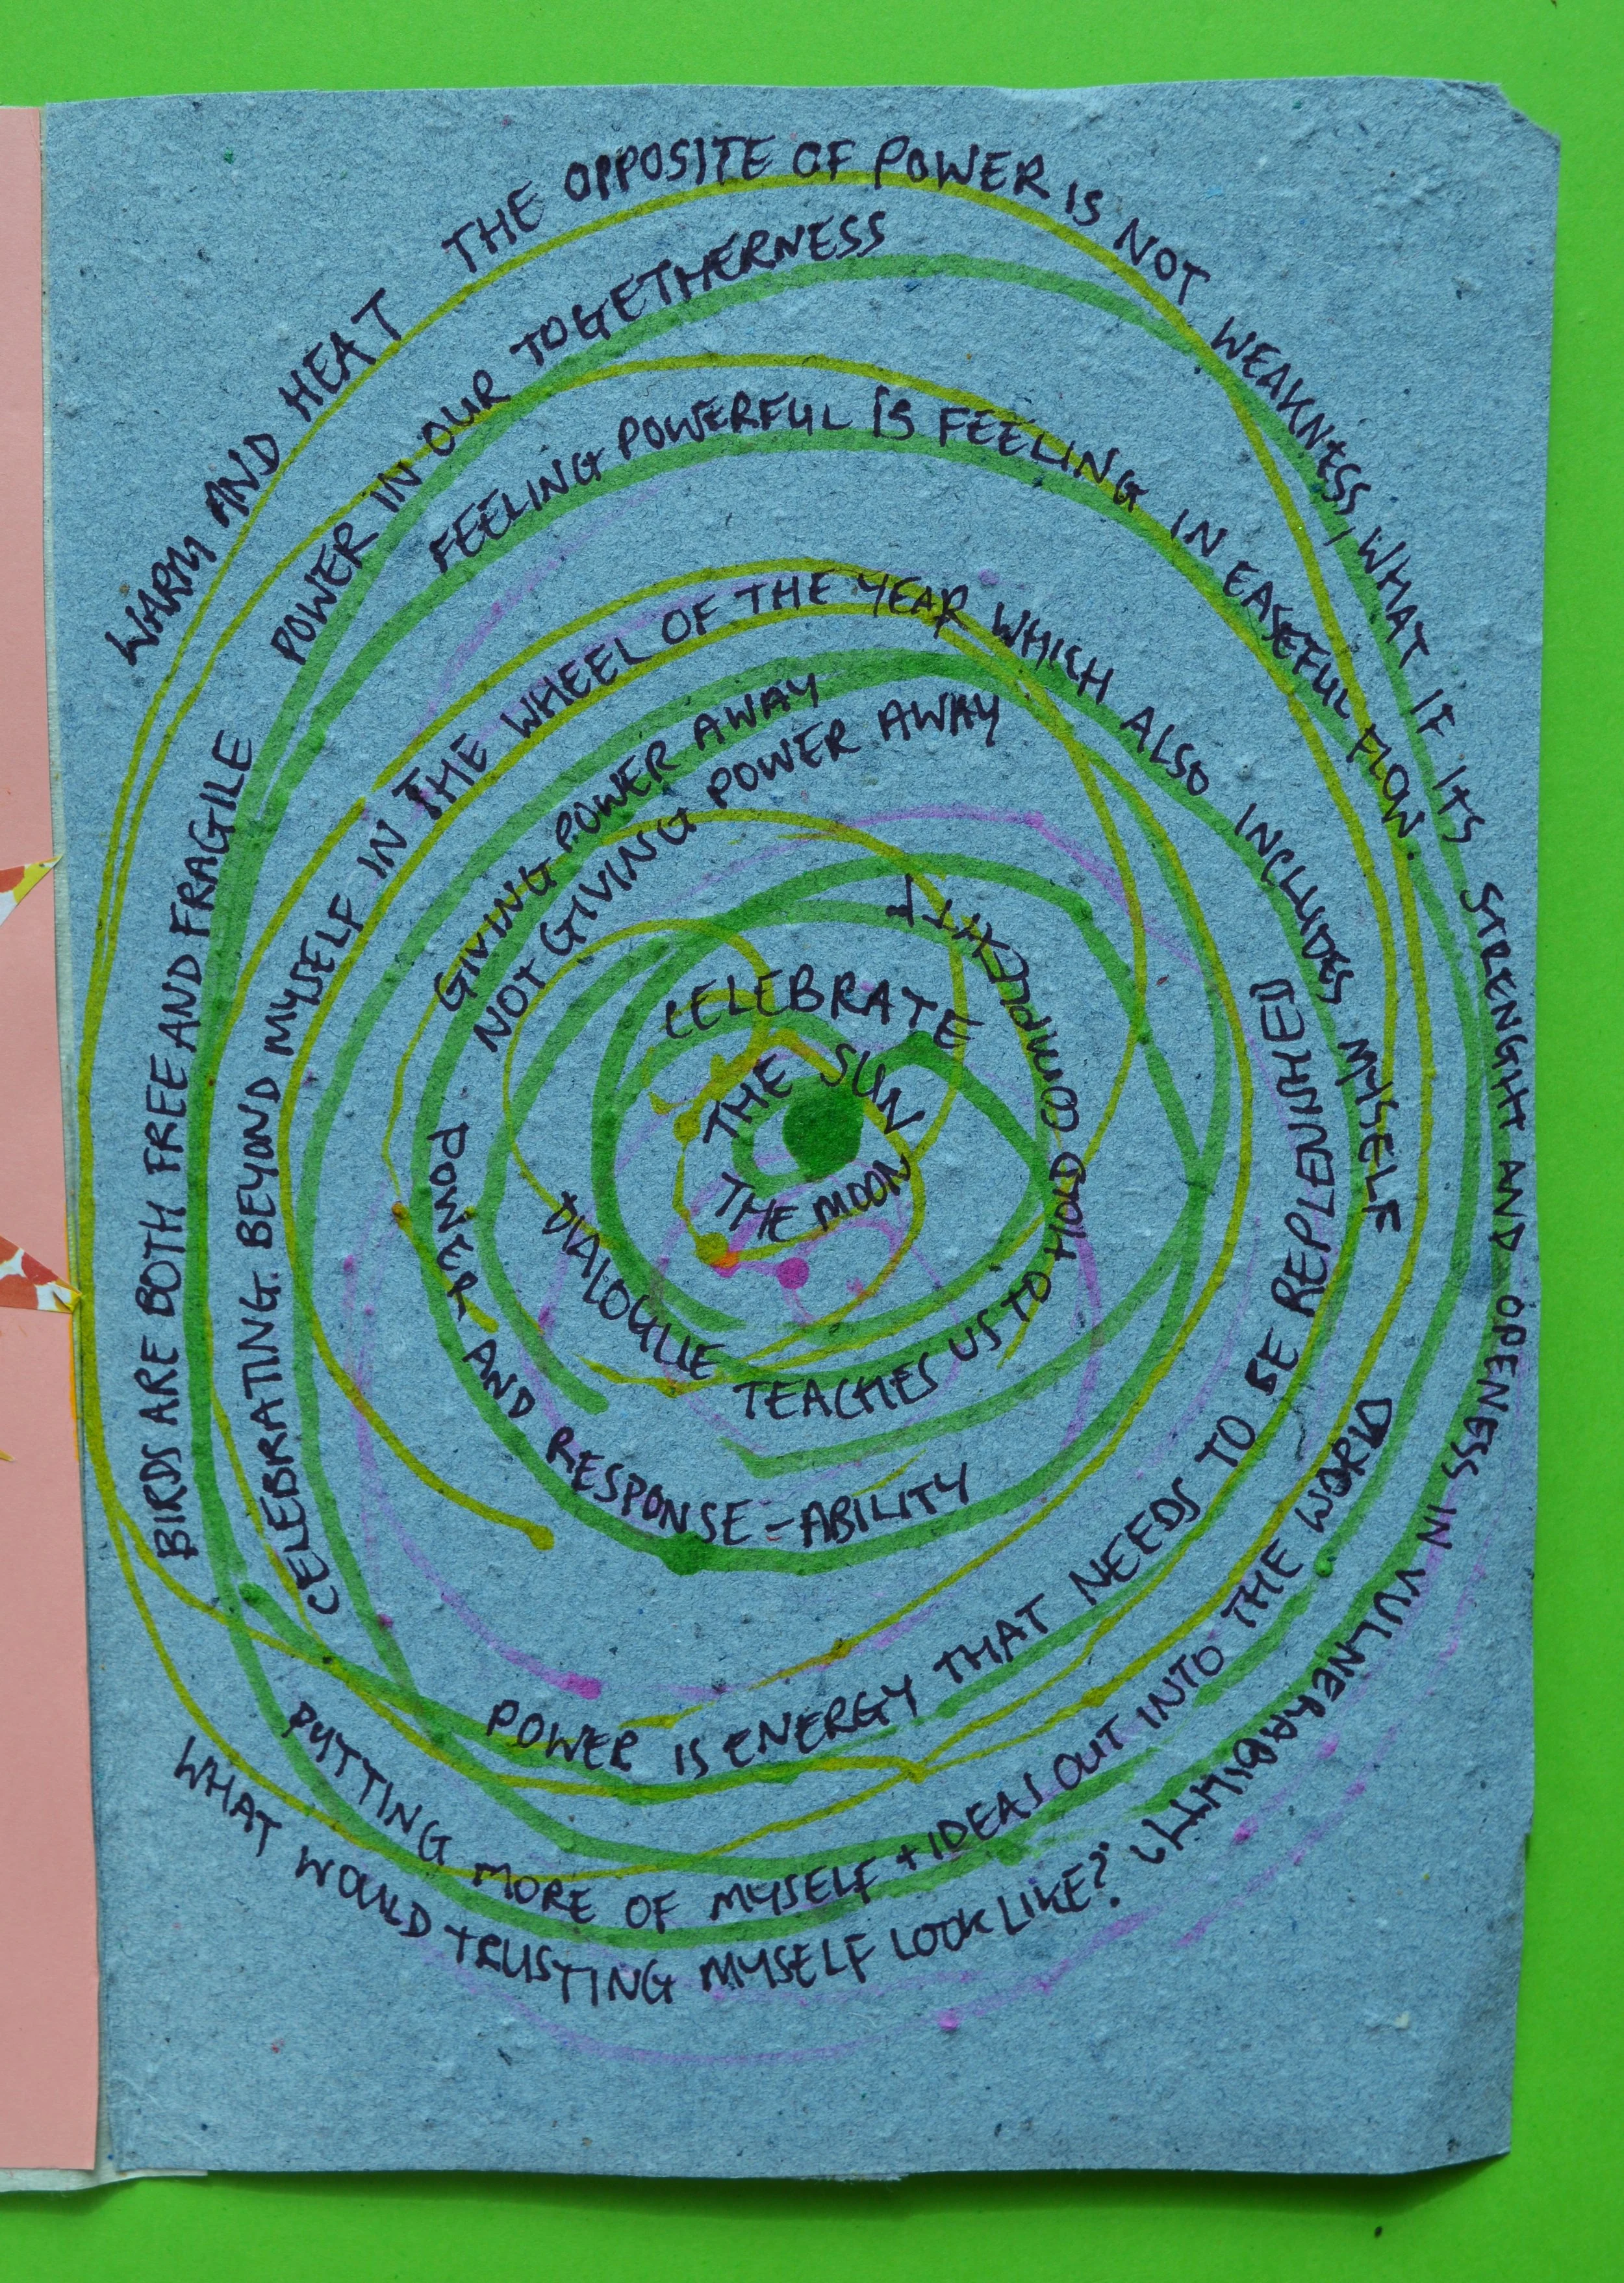 WARM AND HEAT
THE OPPOSITE OF POWER IS NOT WEAKNESS, WHAT IF IT'S STRENGHT AND OPENESS IN VULNERABILITY
POWER IN OUR TOGETHERNESS
FEELING POWERFUL IS FEELING IN EASEFUL FLOW
BIRDS ARE BOTH FREE AND FRAGILE
CELEBRATING. BEYOND MYSELF IN THE WHEEL OF THE YEAR WHICH ALSO INCLUDES MYSELF
GIVING POWER AWAY
NOT GIVING POWER AWAY
CELEBRATE
THE SUN
THE MOON
DIALOGUE TEACHES US TO HOLD COMPLEXITY
POWER AND RESPONSE-ABILITY
POWER IS ENERGY THAT NEEDS TO BE REPLENNISHED
PUTTING MORE OF MYSELF + IDEAS OUT INTO THE WORLD
WHAT WOULD TRUSTING MYSELF LOOK LIKE?